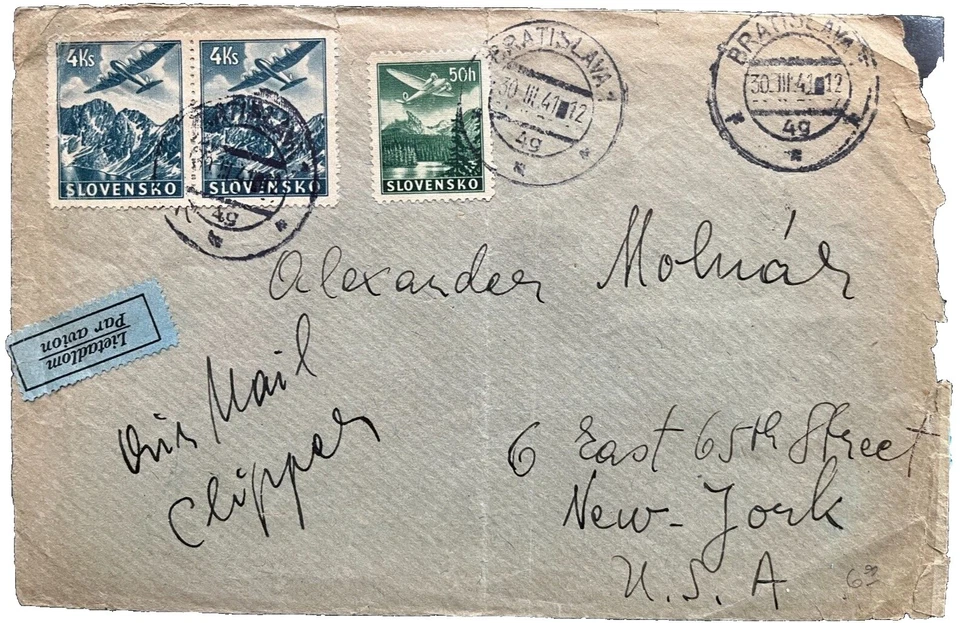 4Ks
4Ks
50h
SLOVENSKO
SLOVENSKO
SLOVENSKO
BRATISLAVA
30.III.41 12
49
BRATISLAVA
30.III.41 12
49
BRATISLAVA
49
Alexander Molnár
Lietadlom
Par avion
Air Mail
Clipper
6 East 65th Street
New-York
U.S.A